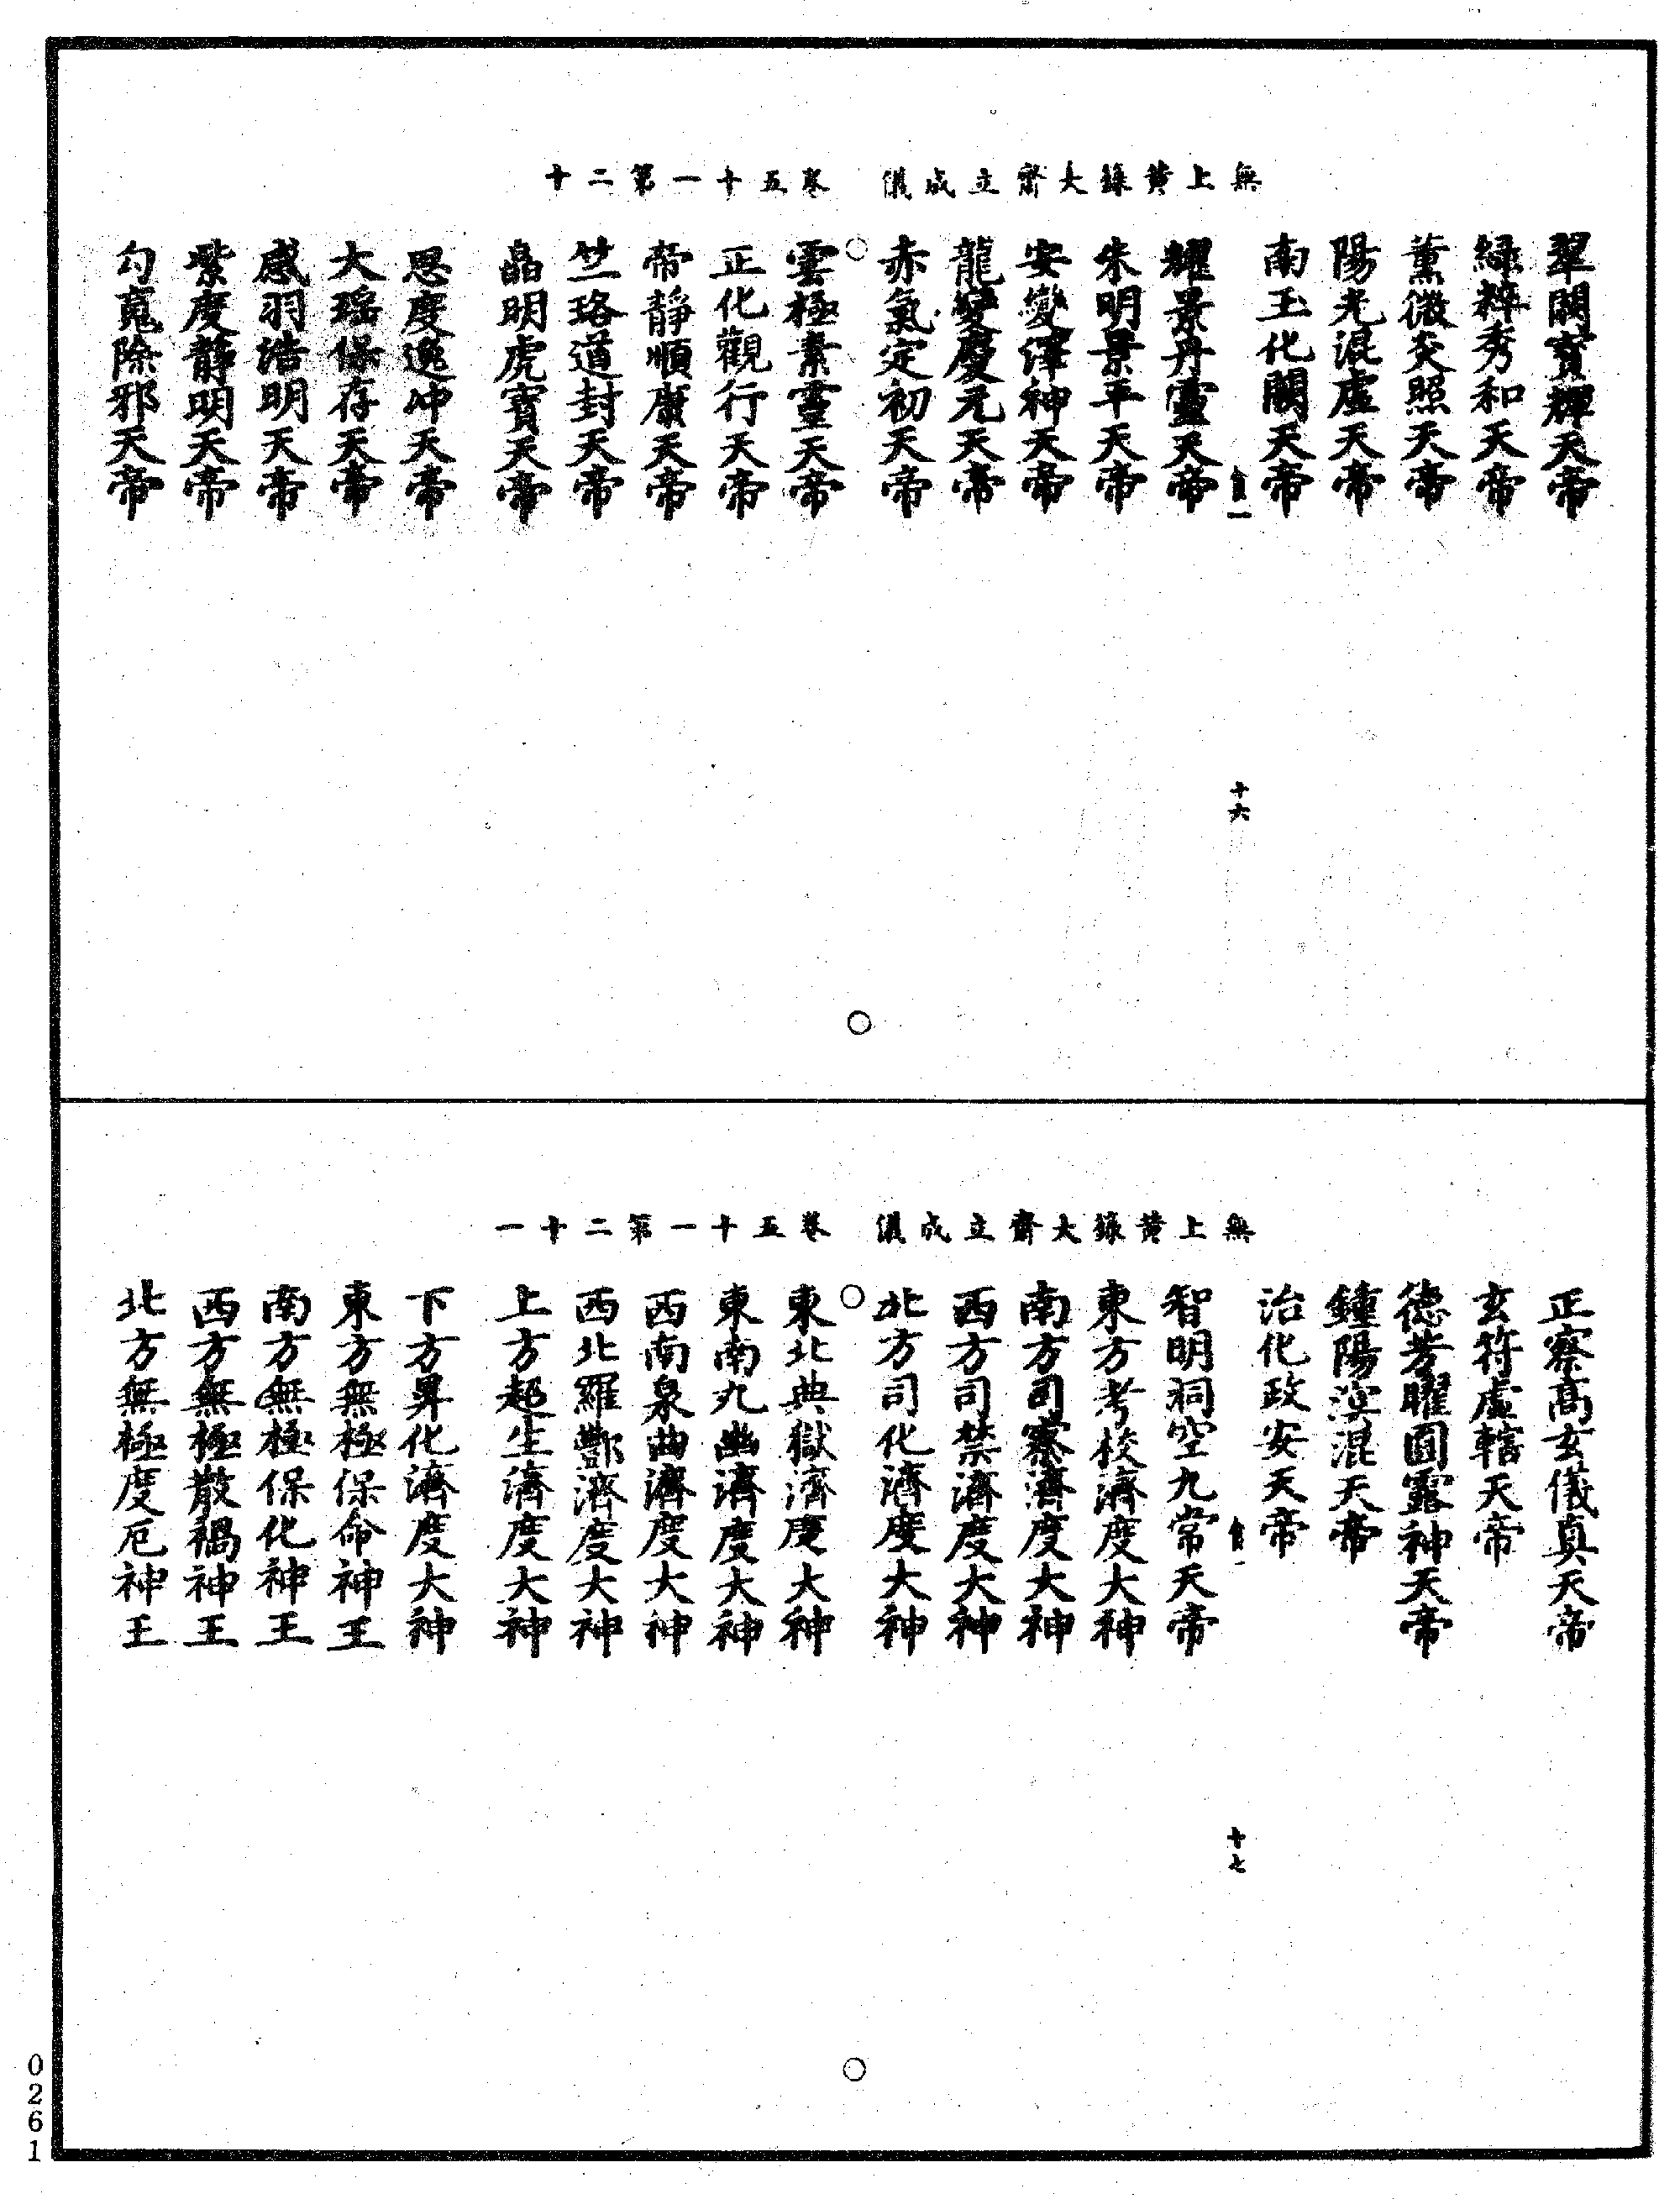 無上黃籙大齋立成儀　卷五十一第二十
翠關寶輝天帝
綠粹秀和天帝
薰微炎照天帝
陽光混虛天帝
南玉化關天帝
十六
耀景丹靈天帝
朱明景平天帝
安變澤神天帝
龍變慶元天帝
赤氣定初天帝
雲極素靈天帝
正化觀行天帝
帝靜順康天帝
竺珞道封天帝
晶明虎賓天帝
思度逸冲天帝
大瑶保存天帝
感羽浩明天帝
紫度靜明天帝
勾䰟除邪天帝
無上黃籙大齋立成儀　卷五十一第二十一
正察高玄儀真天帝
玄符虛轄天帝
德芳曜圓露神天帝
鍾陽滓混天帝
治化政安天帝
十七
智明祠空九常天帝
東方考校濟度大神
南方司察濟度大神
西方司禁濟度大神
北方司化濟度大神
東北典獄濟度大神
東南九幽濟度大神
西南泉曲濟度大神
西北羅酆濟度大神
上方起生濟度大神
下方昇化濟度大神
東方無極保命神王
南方無極保化神王
西方無極散禍神王
北方無極度厄神王
0261